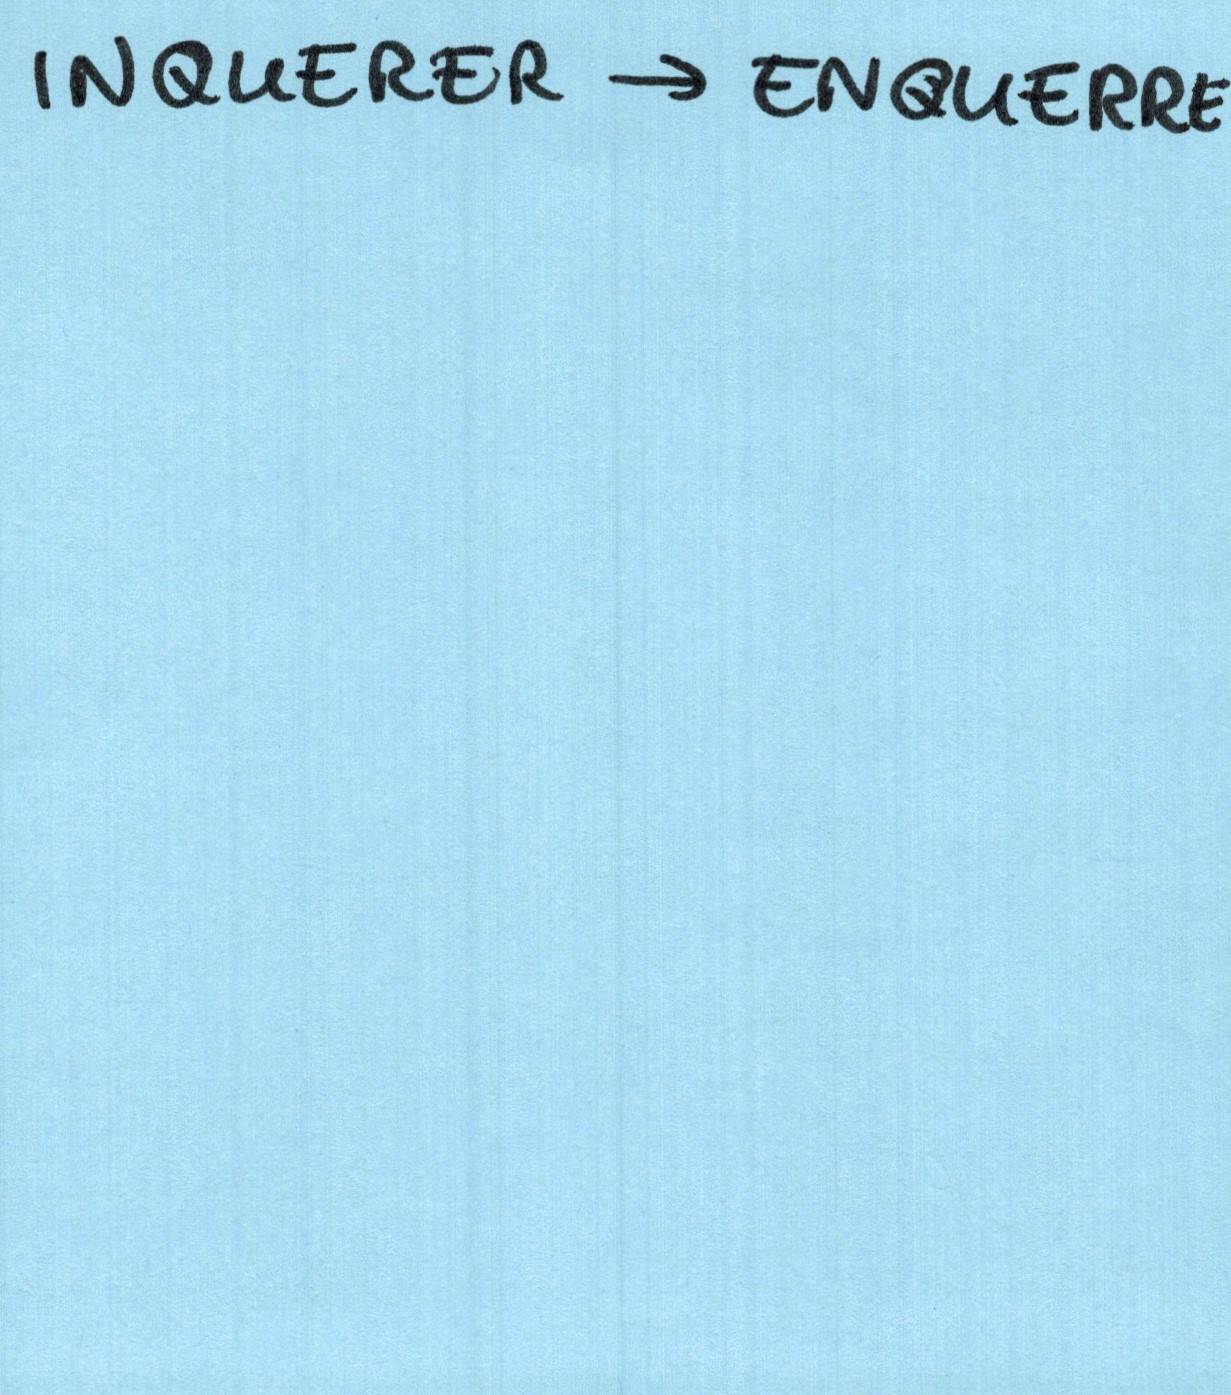 INQUERER → ENQUERRE